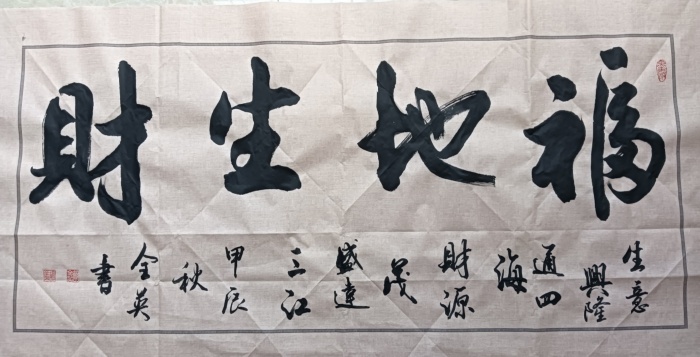 福地生財
生意
興隆
通四
海
財源
茂
盛達
三江
甲辰
秋
金英
書